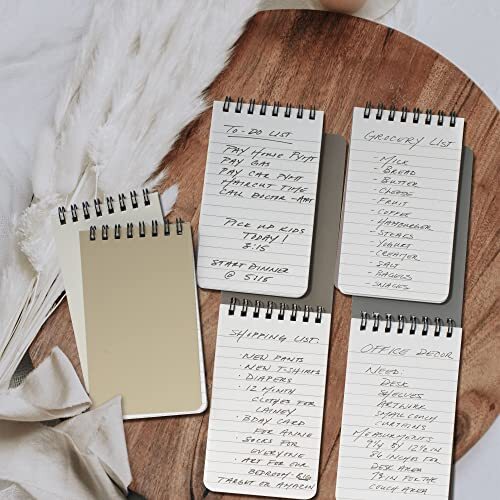 TO-DO LIST
PAY HOME PYMT
PAY GAS
PAY CAR PYMT
HAIRCUT TIME
CALL DOCTOR-APPT
PICK UP KIDS
TODAY!
3:15
START DINNER
@ 5:15
GROCERY LIST
- MILK
- BREAD
- BUTTER
- CHEESE
- FRUIT
- COFFEE
- HAMBURGER
- STEAKS
- YOGURT
- CREAMER
- SALT
- BAGELS
- SNACKS
SHOPPING LIST:
· NEW PANTS
· NEW T-SHIRTS
· DIAPERS
· 12 MONTH
CLOTHES FOR
LAINEY
· BDAY CARD
FOR ANNIE
· SOCKS FOR
EVERYONE
· ART FOR OUR
BEDROOM, BIG
TARGET OR AMAZON
OFFICE DECOR
NEED:
DESK
SHELVES
ARTWORK
SMALL COUCH
CURTAINS
MEASUREMENTS
9½ BY 12½ IN
86 INCHES FOR
DESK AREA
78 IN FOR THE
COUCH AREA